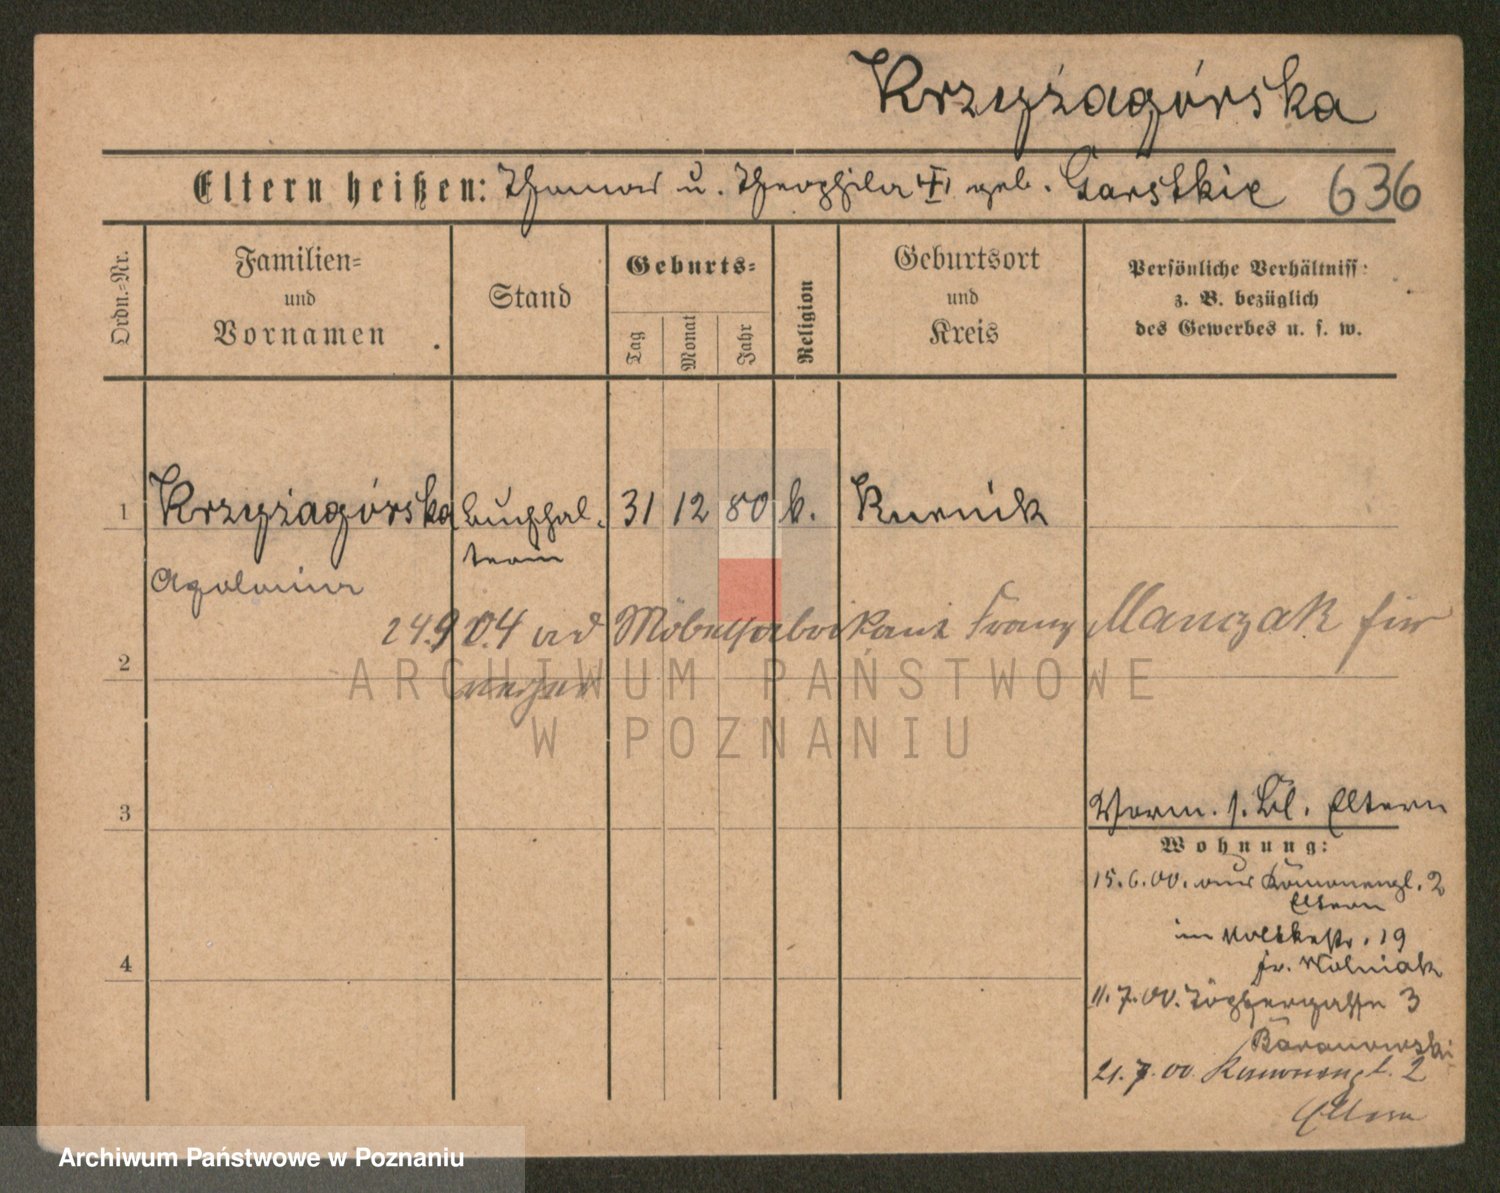 Krzyżagórska
Eltern heißen: Thomas u. Theophila geb. Garstkie 636
Ordn.-Nr.
Familien-
und
Vornamen
Stand
Geburts-
Tag
Monat
Jahr
Religion
Geburtsort
und
Kreis
Persönliche Verhältniss:
z. B. bezüglich
des Gewerbes u. s. w.
1 Krzyżagórska Buchhal- 31 12 80 k. Kurnik
terin
Apolonia
24.9.04 ad Möbelfabrikant Franz Manczak für
2
3
Vorm. s. Bl. Eltern
Wohnung:
15.6.00. aus Kanonenpl. 2
Eltern
in Moltkestr. 19
fr. Wolniak
4
11.7.00. Töpfergasse 3
Baranowski
21.7.00 Kanonenpl. 2
Eltern
ARCHIWUM PAŃSTWOWE
W POZNANIU
Archiwum Państwowe w Poznaniu